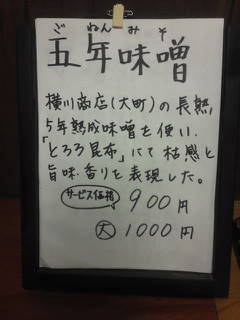 ごねんみそ
五年味噌
横川商店(大町)の長熟
5年熟成味噌を使い、
「とろろ昆布」にて枯感と
旨味・香りを表現した。
サービス価格 900円
大 1000円